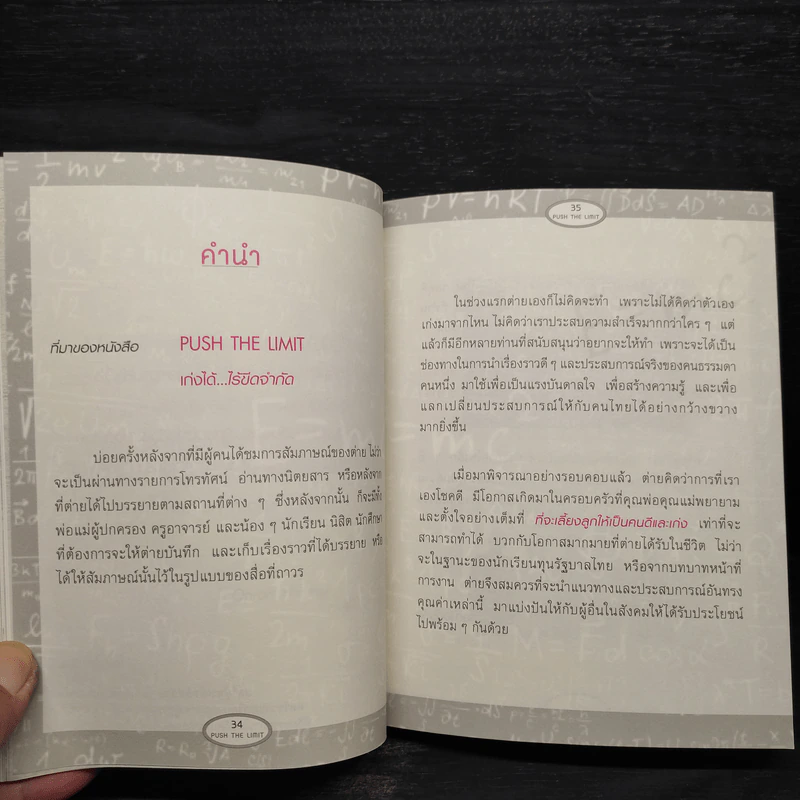 คำนำ
ที่มาของหนังสือ PUSH THE LIMIT
เก่งได้...ไร้ขีดจำกัด
บ่อยครั้งหลังจากที่มีผู้คนได้ชมการสัมภาษณ์ของต่าย ไม่ว่า
จะเป็นผ่านทางรายการโทรทัศน์ อ่านทางนิตยสาร หรือหลังจาก
ที่ต่ายได้ไปบรรยายตามสถานที่ต่าง ๆ ซึ่งหลังจากนั้น ก็จะมีทั้ง
พ่อแม่ผู้ปกครอง ครูอาจารย์ และน้อง ๆ นักเรียน นิสิต นักศึกษา
ที่ต้องการจะให้ต่ายบันทึก และเก็บเรื่องราวที่ได้บรรยาย หรือ
ได้ให้สัมภาษณ์นั้นไว้ในรูปแบบของสื่อที่ถาวร
34
PUSH THE LIMIT
35
PUSH THE LIMIT
ในช่วงแรกต่ายเองก็ไม่คิดจะทำ เพราะไม่ได้คิดว่าตัวเอง
เก่งมาจากไหน ไม่คิดว่าเราประสบความสำเร็จมากกว่าใคร ๆ แต่
แล้วก็มีอีกหลายท่านที่สนับสนุนว่าอยากจะให้ทำ เพราะจะได้เป็น
ช่องทางในการนำเรื่องราวดี ๆ และประสบการณ์จริงของคนธรรมดา
คนหนึ่ง มาใช้เพื่อเป็นแรงบันดาลใจ เพื่อสร้างความรู้ และเพื่อ
แลกเปลี่ยนประสบการณ์ให้กับคนไทยได้อย่างกว้างขวาง
มากยิ่งขึ้น
เมื่อมาพิจารณาอย่างรอบคอบแล้ว ต่ายคิดว่าการที่เรา
เองโชคดี มีโอกาสเกิดมาในครอบครัวที่คุณพ่อคุณแม่พยายาม
และตั้งใจอย่างเต็มที่ ที่จะเลี้ยงลูกให้เป็นคนดีและเก่ง เท่าที่จะ
สามารถทำได้ บวกกับโอกาสมากมายที่ต่ายได้รับในชีวิต ไม่ว่า
จะในฐานะของนักเรียนทุนรัฐบาลไทย หรือจากบทบาทหน้าที่
การงาน ต่ายจึงสมควรที่จะนำแนวทางและประสบการณ์อันทรง
คุณค่าเหล่านี้ มาแบ่งปันให้กับผู้อื่นในสังคมให้ได้รับประโยชน์
ไปพร้อม ๆ กันด้วย